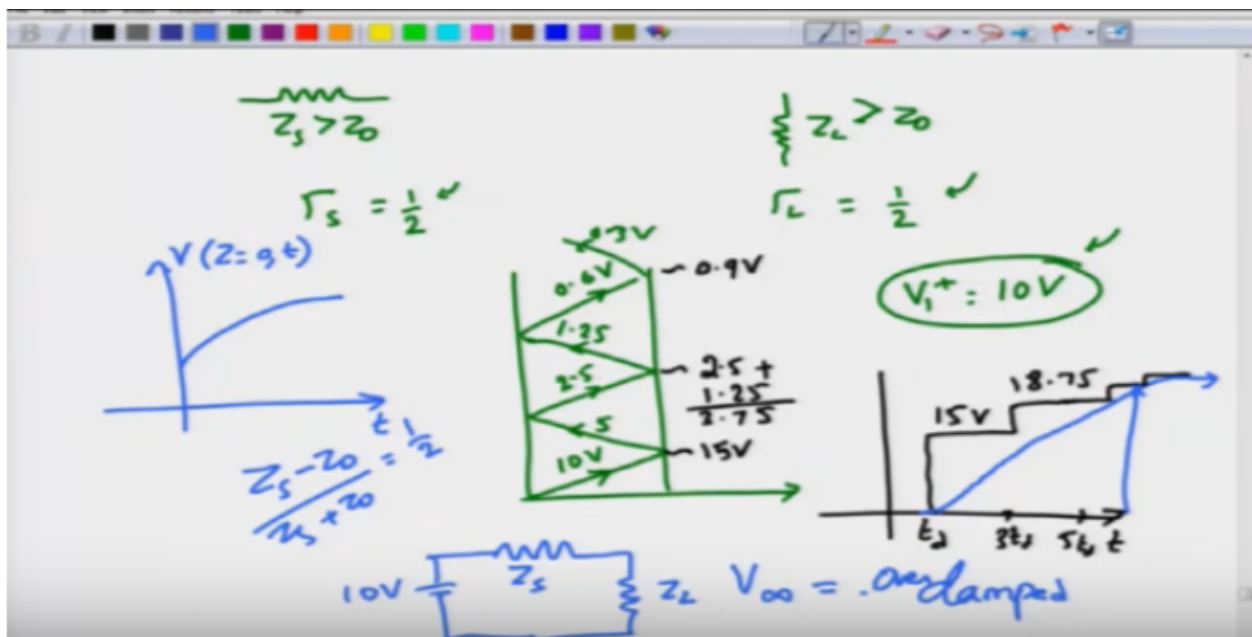 B I
Z_S > Z_0
Z_L > Z_0
Γ_S = 1/2
Γ_L = 1/2
V(Z=0,t)
t
Z_S - Z_0 / Z_S + Z_0 = 1/2
0.3V
0.6V
~ 0.9V
1.25
2.5
~ 2.5 +
1.25
3.75
5
10V
~ 15V
V_1^+ = 10V
18.75
15V
t_d 3t_d 5t_d t
10V Z_S Z_L V_∞ = . Overdamped